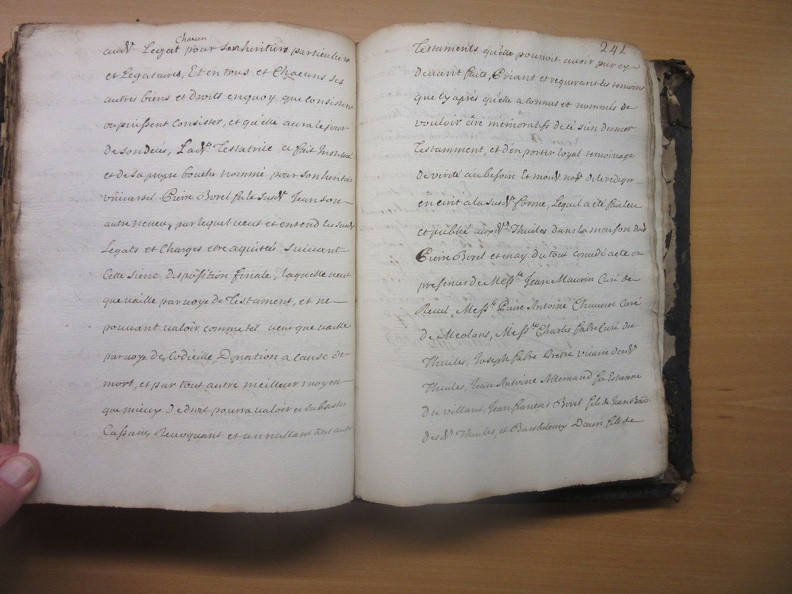 Chacun
aud.t Legat pour ses heritiers particuliers
et Legataires, Et en tous et Chacuns ses
autres biens et droits en quoy que consistent
ou puissent Consister, et qu'elle aura le jour
de son deces, La d.e Testatrice a fait Institué
et de sa propre bouche nommé, pour son heritier
universel Pierre Borel fils susd.t Jean son
autre neveu, par lequel veut et entend les susd.s
Legats et Charges etre aquitéés suivant
Cette sienne disposition finale, laquelle veut
que vaille par voye de Testament, et ne
pouvant valoir comme tel veut que vaille
par voye de Codicille, Donation a cause de
mort, et par tout autre meilleur moyen
que mieux de droit pourra valoir et subsister
Cassant, Revoquant et annullant tous autres
242
Testaments qu'elle pourroit avoir par cy
devant faits, Priant et requerant les temoins
que cy après qu'elle a connus et nommés de
vouloir être memoratifs de ce sien dernier
Testamment, et d'en porter loyal temoignage
de verité au besoin Et moy no.re de le rediger
en ecrit a la susd.e forme, Lequel a eté fait leu
et publié aux d.s Thuiles dans la maison dud.
Pierre Borel et moy du tout concedé acte en
presence de Mess.re Jean Maurin Curé de
Revel, Mess.re Pierre Antoine Chauvet Curé
de Meolans, Mess.re Charles fabre Curé du
Thuiles, Joseph fabre Pretre vicaire desd.s
Thuiles, Jean Antoine Allemand feu Estienne
du villard, Jean françois Borel fils de Jean
desd.s Thuiles, et Barthelemy Daum fils de